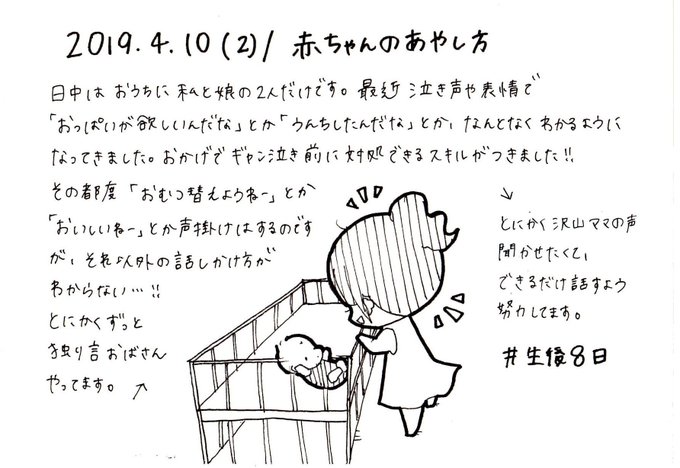 2019.4.10(2)/ 赤ちゃんのあやし方
日中は おうちに 私と娘の2人だけです。最近 泣き声や表情で
「おっぱいが欲しいんだな」とか「うんちしたんだな」とか、なんとなくわかるように
なってきました。おかげでギャン泣き前に対処できるスキルがつきました!!
その都度「おむつ替えようねー」とか
「おいしいねー」とか声掛けはするのです
が、それ以外の話しかけ方が
わからない…!!
とにかくずっと
独り言おばさん
やってます。↗
↓
とにかく沢山ママの声
聞かせたくて、
できるだけ話すよう
努力してます。
#生後8日